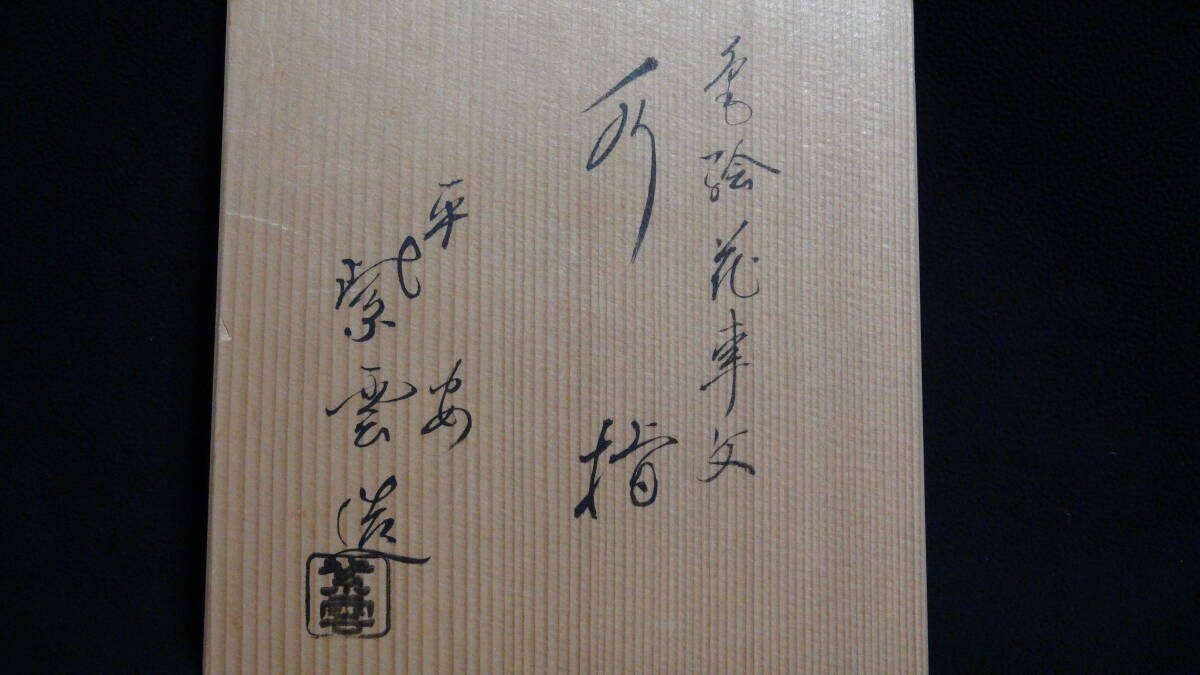 色絵花車文
水指
平安
紫雲造
紫雲